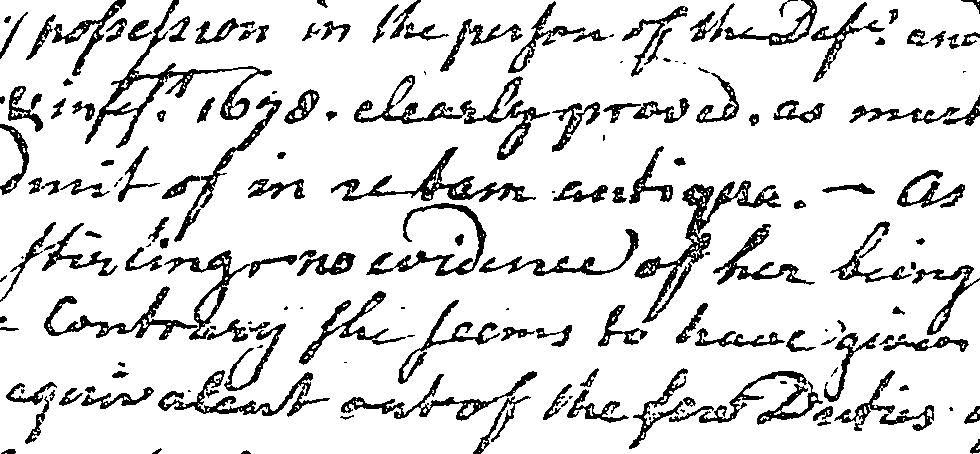 possession in the person of the Deft. and
infft. 1698. clearly proved. as much
dmit of in re tam antiqua. — As
Stirling no evidence of her being
Contrary she seems to have given
equivalent out of the few Duties